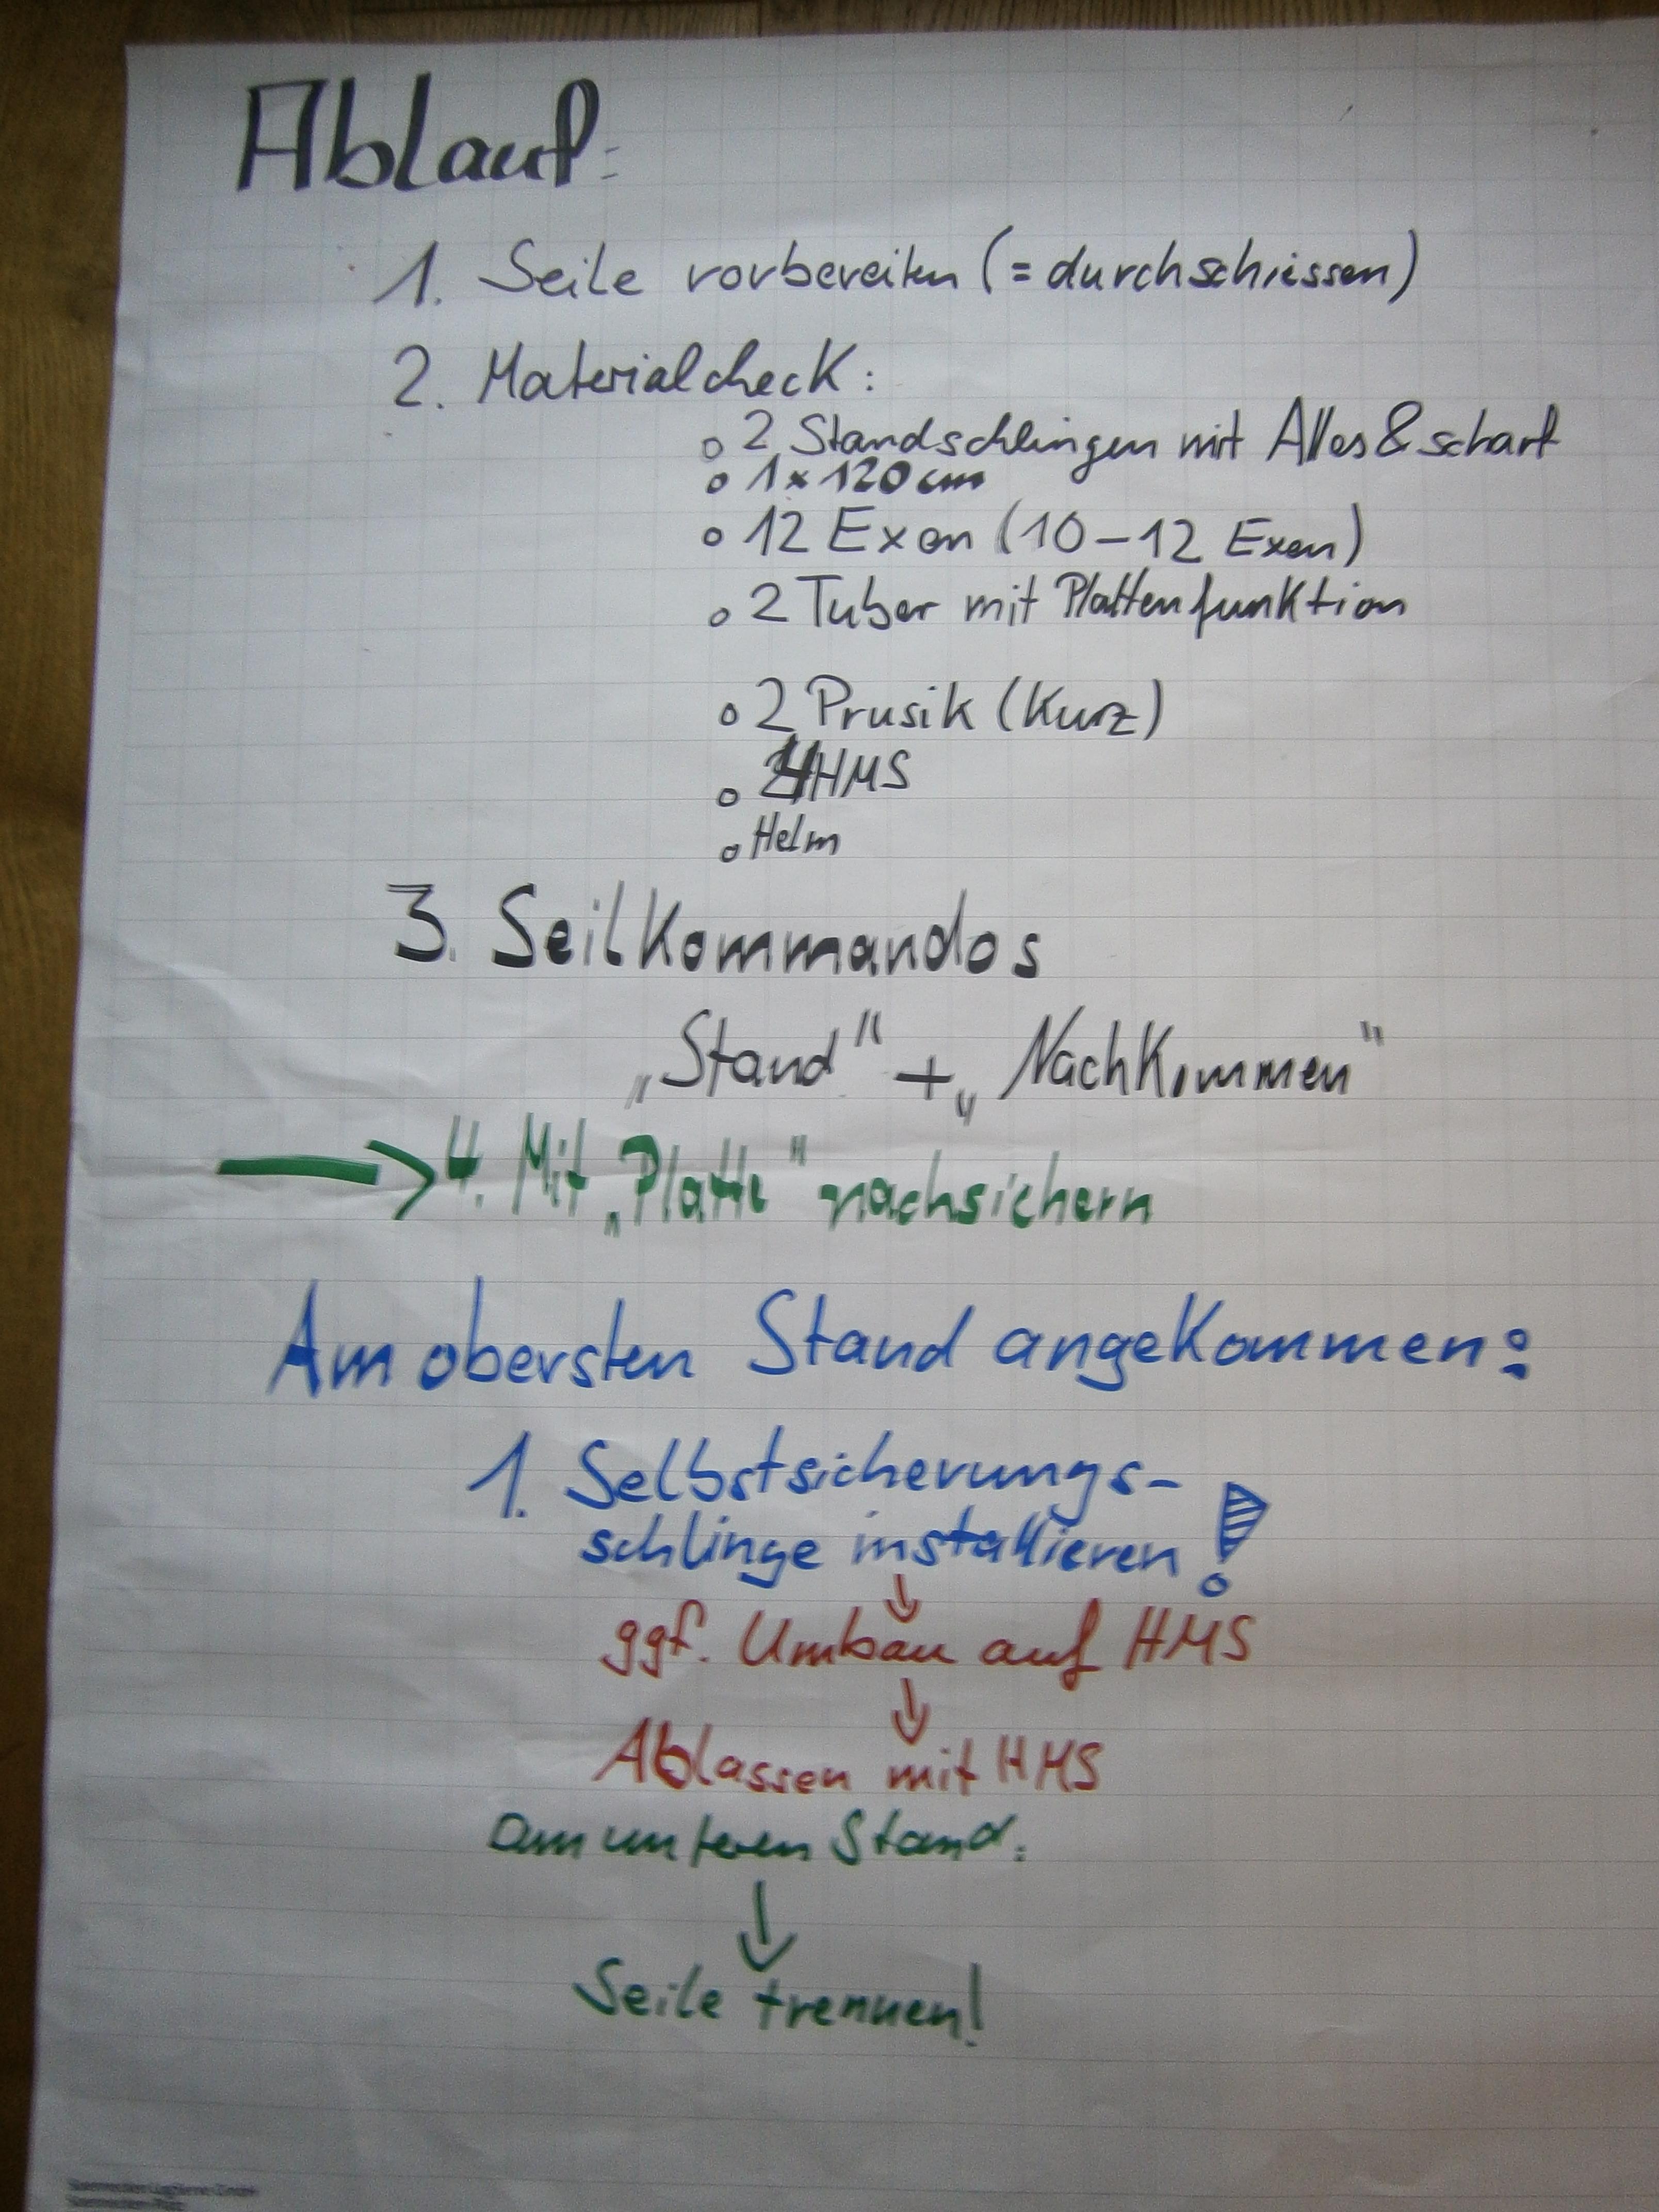 Ablauf:
1. Seile vorbereiten (= durchschiessen)
2. Materialcheck:
o 2 Standschlingen mit Alles & scharf
o 1x120cm
o 12 Exen (10-12 Exen)
o 2 Tuber mit Plattenfunktion
o 2 Prusik (Kurz)
o 4 HMS
o Helm
3. Seilkommandos
„Stand" + „Nachkommen"
→ 4. Mit „Platte" nachsichern
Am obersten Stand angekommen:
1. Selbstsicherungs-
schlinge installieren!
↓
ggf. Umbau auf HMS
↓
Ablassen mit HMS
am unteren Stand:
↓
Seile trennen!